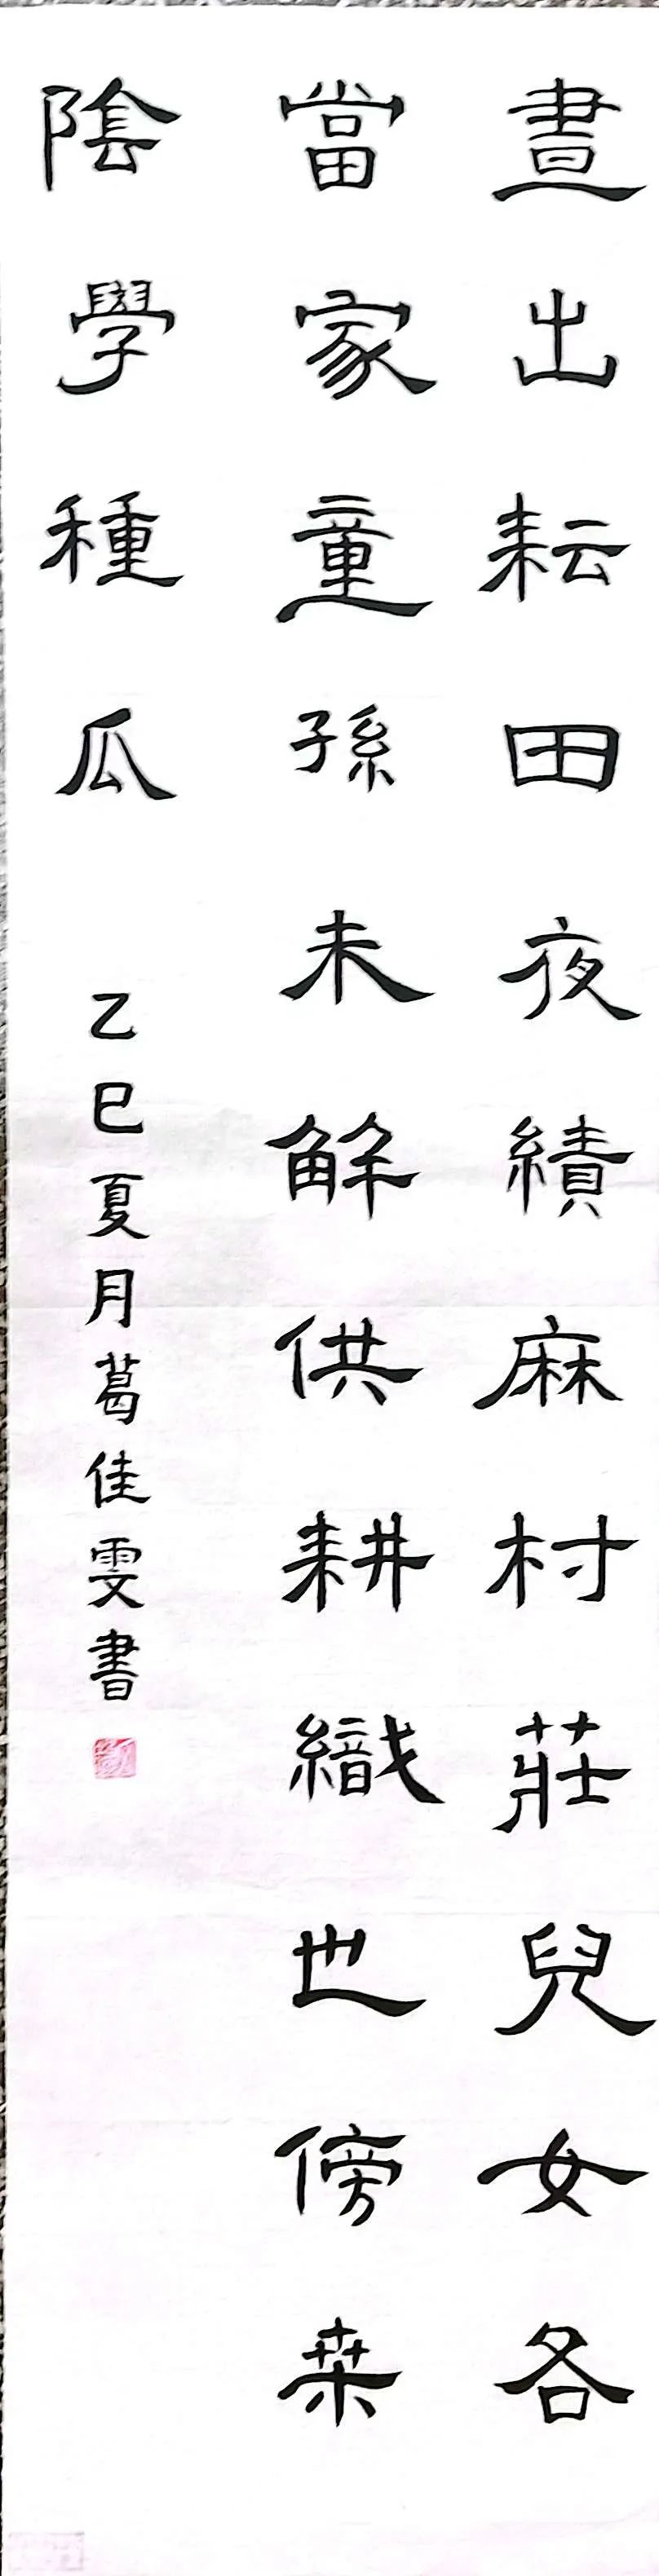 晝出耘田夜績麻村莊兒女各
當家童孫未解供耕織也傍桒
陰學種瓜
乙巳夏月葛佳雯書